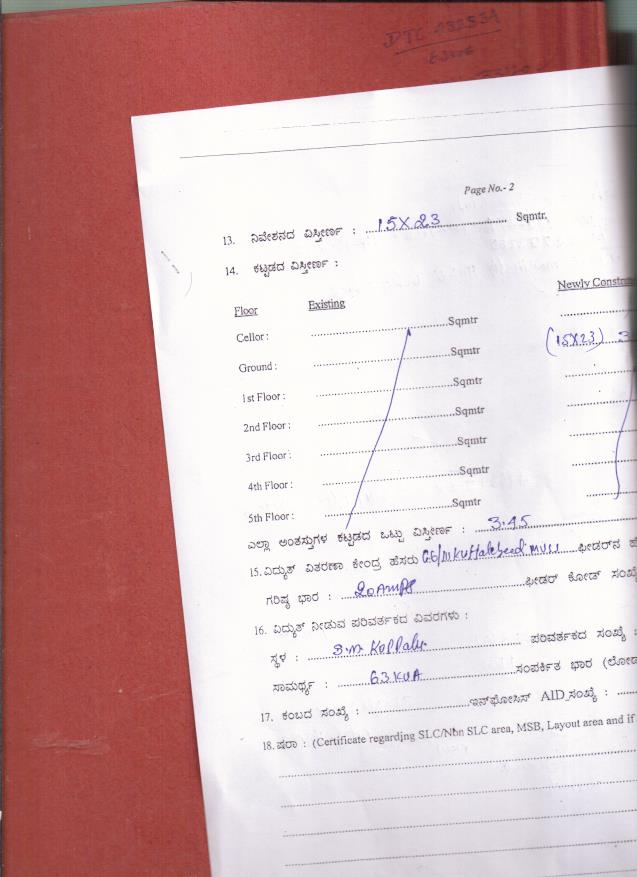 DTC
Page No.- 2
13. ನಿವೇಶನದ ವಿಸ್ತೀರ್ಣ : 15X23 Sqmtr.
14. ಕಟ್ಟಡದ ವಿಸ್ತೀರ್ಣ :
Floor Existing Newly Constru
Cellor : Sqmtr
Ground : Sqmtr (15X23) 3
1st Floor : Sqmtr
2nd Floor : Sqmtr
3rd Floor : Sqmtr
4th Floor : Sqmtr
5th Floor : Sqmtr
ಎಲ್ಲಾ ಅಂತಸ್ತುಗಳ ಕಟ್ಟಡದ ಒಟ್ಟು ವಿಸ್ತೀರ್ಣ : 3.45
15. ವಿದ್ಯುತ್ ವಿತರಣಾ ಕೇಂದ್ರ ಹೆಸರು ಫೀಡರ್‌ನ ಹೆ
ಗರಿಷ್ಠ ಭಾರ : 20AmPS ಫೀಡರ್ ಕೋಡ್ ಸಂಖ್ಯೆ
16. ವಿದ್ಯುತ್ ನೀಡುವ ಪರಿವರ್ತಕದ ವಿವರಗಳು :
ಸ್ಥಳ : KOPPalu ಪರಿವರ್ತಕದ ಸಂಖ್ಯೆ :
ಸಾಮರ್ಥ್ಯ : 63KVA ಸಂಪರ್ಕಿತ ಭಾರ (ಲೋಡ
17. ಕಂಬದ ಸಂಖ್ಯೆ : ಇನ್‌ಫೋಸಿಸ್ AID ಸಂಖ್ಯೆ :
18. ಷರಾ : (Certificate regarding SLC/Non SLC area, MSB, Layout area and if